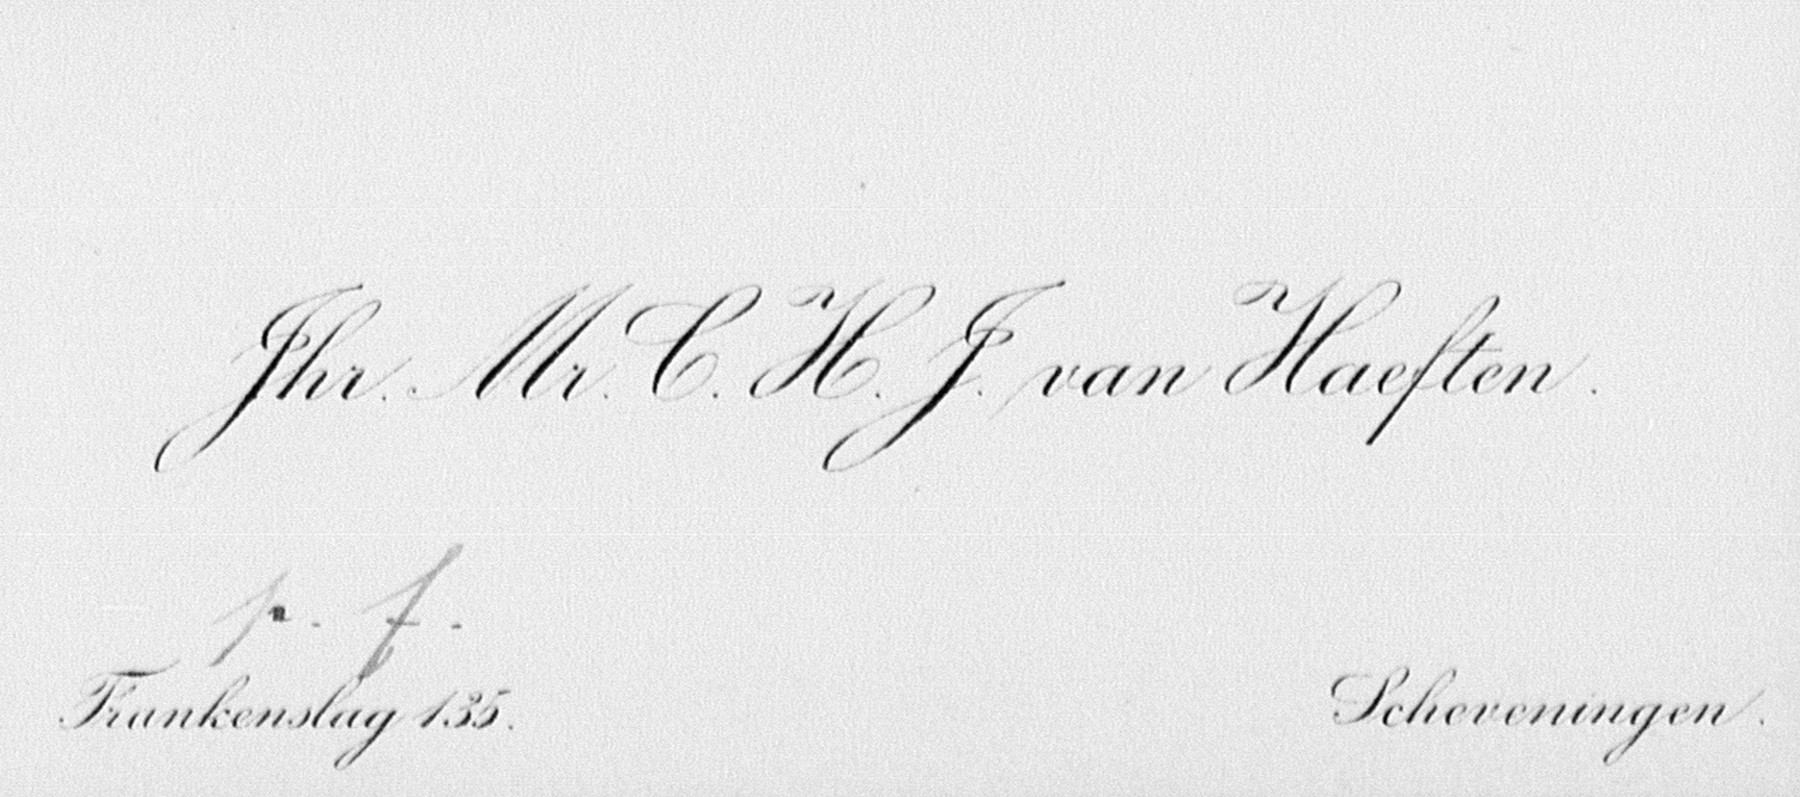 Jhr. Mr. C. H. J. van Haeften.
p. f.
Frankenslag 135.
Scheveningen.